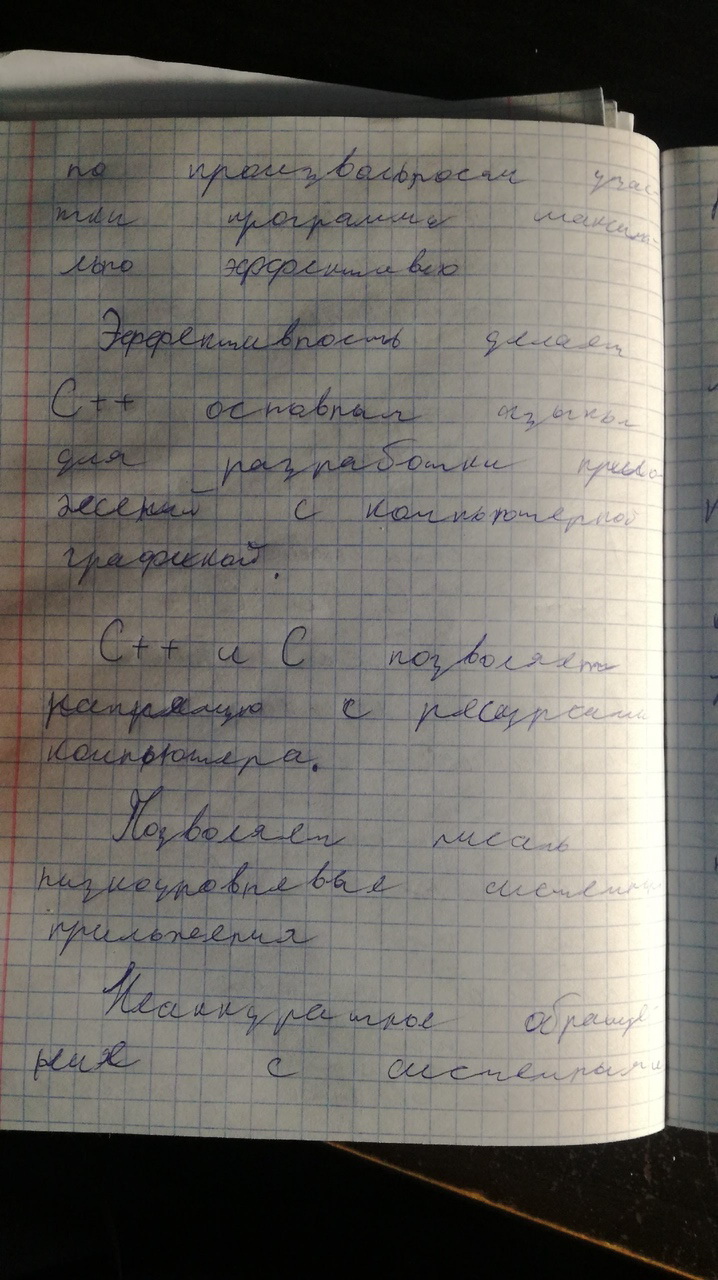 по произвольросам учас-
тки программе максим-
льно эффективно
Эффективность делает
C++ оставным языком
для разработки прило
жений с компьютерной
графикой.
C++ и C позволяет
напрямую с ресурсами
компьютера.
Позволяет писать
низкоуровневые системные
приложения
Неаккуратное обраще
ние с системными